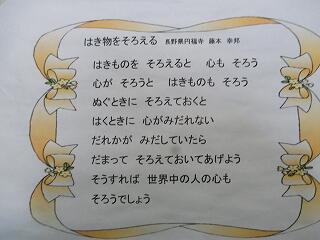 はき物をそろえる 長野県円福寺 藤本 幸邦
はきものを そろえると 心も そろう
心が そろうと はきものも そろう
ぬぐときに そろえておくと
はくときに 心がみだれない
だれかが みだしていたら
だまって そろえておいてあげよう
そうすれば 世界中の人の心も
そろうでしょう